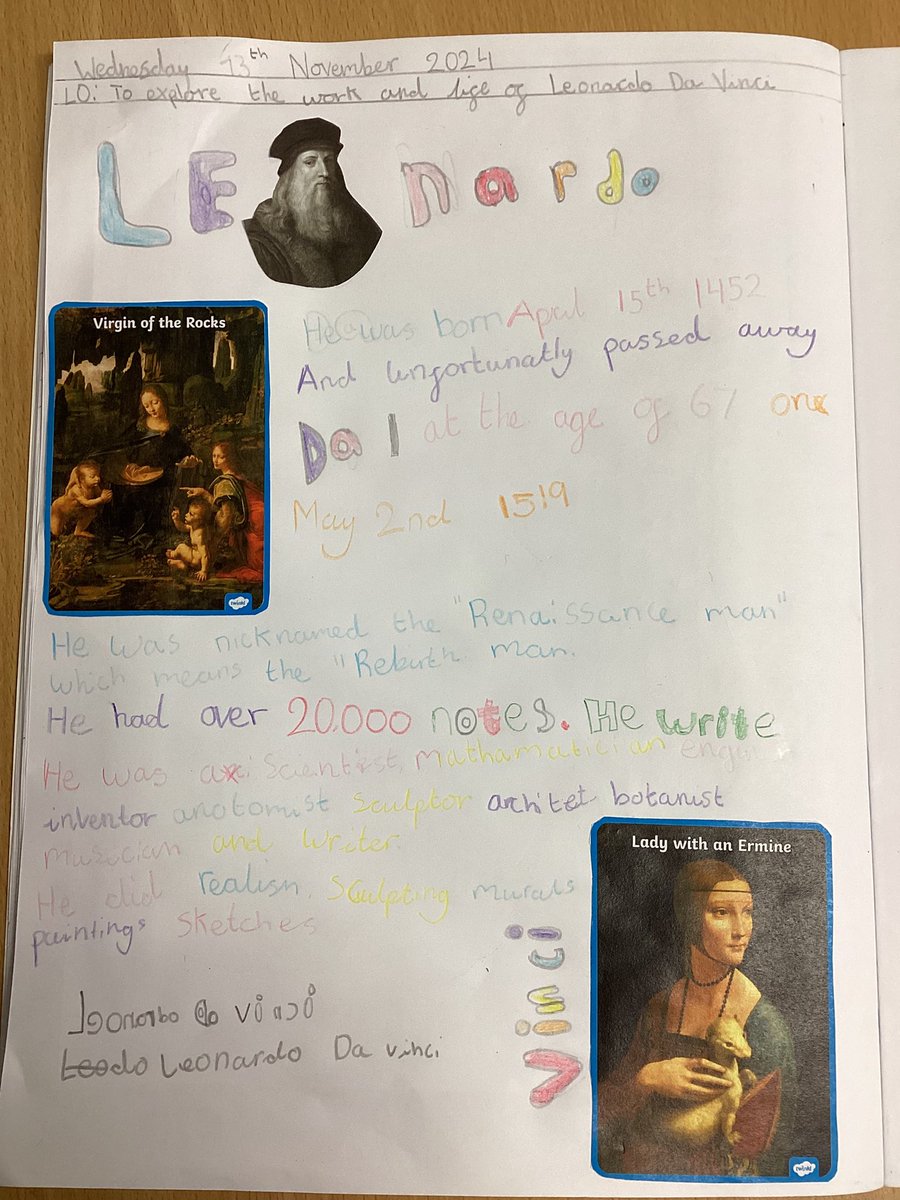 Wednesday 13th November 2024
LO: To explore the work and life of Leonardo Da Vinci
LE nardo
Virgin of the Rocks
He was born April 15th 1452
And unfortunatly passed away
Da
at the age of 67 one
May 2nd 1519
twinkl
He was nicknamed the "Renaissance man"
which means the "Rebirth man.
He had over 20,000 notes. He write
He was a Scientist, mathamatician
inventor anotomist Sculptor architet botanist
musician and writer.
He did realism, Sculpting murals
paintings Sketches
Lady with an Ermine
Vinci
Leonardo Da Vinci
Leonardo Da vinci
twinkl